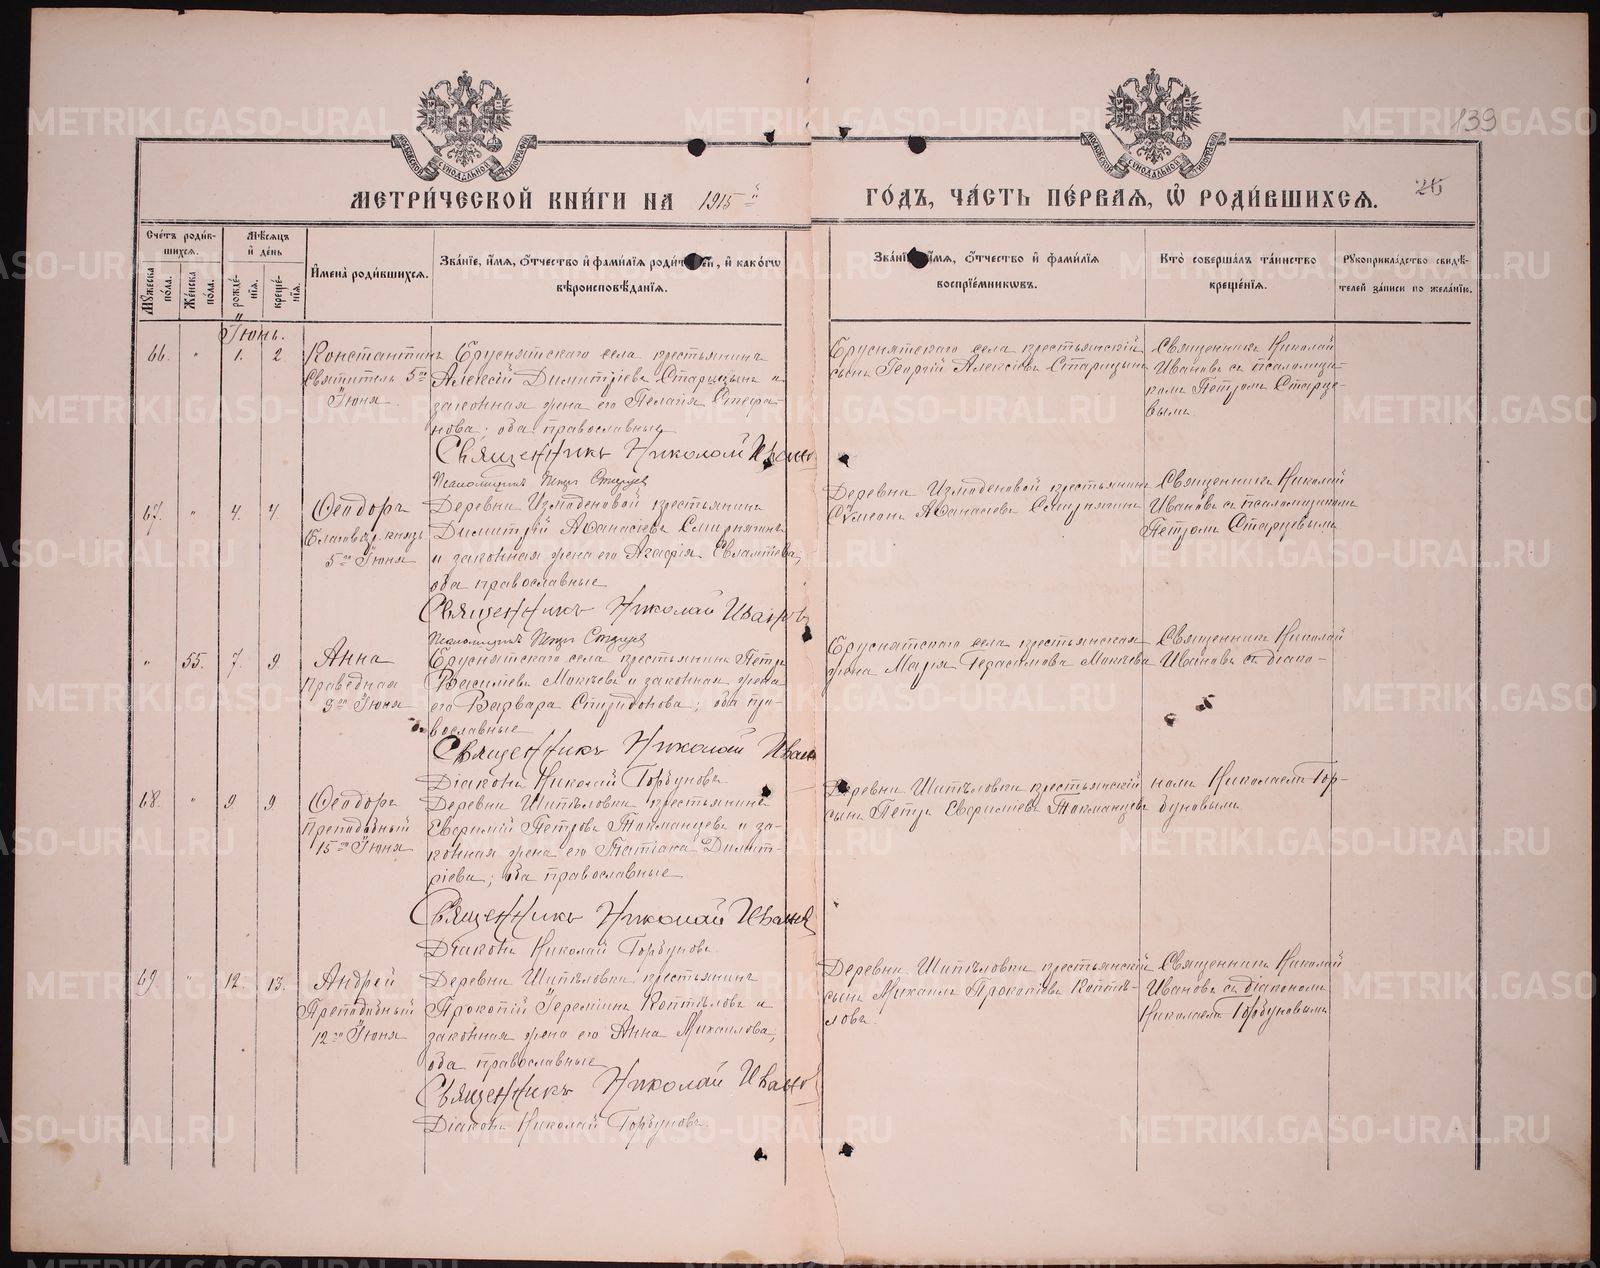 139
МОСКОВСКОЙ СУНОДАЛЬНОЙ ТИПОГРАФІИ
МОСКОВСКОЙ СУНОДАЛЬНОЙ ТИПОГРАФІИ
МЕТРИ́ЧЕСКОЙ КНИ́ГИ НА 1915й
ГО́ДЪ, ЧА́СТЬ ПЕ́РВАЯ, Ѡ РОДИ́ВШИХСЯ.
Сче́тъ роди́в-
шихся.
Мѣ́сяцъ
и̂ де́нь
Му́жеска по́ла.
Же́нска по́ла.
рожде́-
нія.
креще́-
нія.
И̂мена̀ роди́вшихся.
Зва́ніе, и̂́мя, ѻ̂́тчество и̂ фами́лія роди́телей, и̂ како́гѡ
вѣроисповѣ́данія.
Зва́ніе, и̂́мя, ѻ̂́тчество и̂ фами́лія
воспріе́мникѡвъ.
Кто̀ соверша́лъ та́инство
креще́нія.
Рꙋкоприкла́дство свидѣ́-
телей за́писи по жела́нію.
Іюнь.
66. " 1. 2
Константинъ
Святитель 5го
Іюня.
Бруснятскаго села крестьянинъ
Алексій Димитріевъ Старицынъ и
законная жена его Пелагія Стефа-
нова; оба православные
Священникъ Николай Ивановъ
Псаломщикъ Петръ Старцевъ
Бруснятскаго села крестьянскій
сынъ Георгій Алексіевъ Старицынъ
Священникъ Николай
Ивановъ съ псаломщи-
комъ Петромъ Старце-
вымъ
67. " 4. 4.
Ѳеодоръ
Благовѣр. князь
5го Іюня
Деревни Измоденовой крестьянинъ
Димитрій Аѳанасіевъ Смирнягинъ
и законная жена его Агафія Евлампіева,
оба православные
Священникъ Николай Ивановъ
Псаломщикъ Петръ Старцевъ
Деревни Измоденовой крестьянинъ
Сѵмеонъ Аѳанасіевъ Смирнягинъ
Священникъ Николай
Ивановъ съ псаломщикомъ
Петромъ Старцевымъ
" 55. 7. 9.
Анна
Праведная
9го Іюня
Бруснятскаго села крестьянинъ Петръ
Василіевъ Мокѣевъ и законная жена
его Варвара Спиридонова; оба пра-
вославные
Священникъ Николай Ивановъ
Діаконъ Николай Горбуновъ
Бруснятскаго села крестьянская
жена Марія Герасимова Мокѣева
Священникъ Николай
Ивановъ съ діако-
номъ Николаемъ Гор-
буновымъ
68. " 9. 9.
Ѳеодоръ
Преподобный
15го Іюня
Деревни Шипѣловки крестьянинъ
Петровъ Токманцевъ и за-
конная жена его Татіана Димит-
ріева; оба православные
Священникъ Николай Ивановъ
Діаконъ Николай Горбуновъ
Деревни Шипѣловки крестьянскій
сынъ Петръ Токманцевъ
69. " 12. 13.
Андрей
Преподобный
12го Іюня
Деревни Шипѣловки крестьянинъ
Прокопій Іереміинъ Коптѣловъ и
законная жена его Анна Михаилова,
оба православные
Священникъ Николай Ивановъ
Діаконъ Николай Горбуновъ.
Деревни Шипѣловки крестьянскій
сынъ Михаилъ Прокопіевъ Коптѣ-
ловъ.
Священникъ Николай
Ивановъ съ діакономъ
Николаемъ Горбуновымъ
METRIKI.GASO-URAL.RU